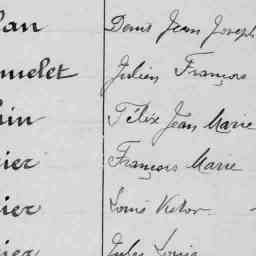 lan Denis Jean Joseph
muelet Julien François
hin Félix Jean Marie
ier François Marie
ier Louis Victor -
ier Jules Louis